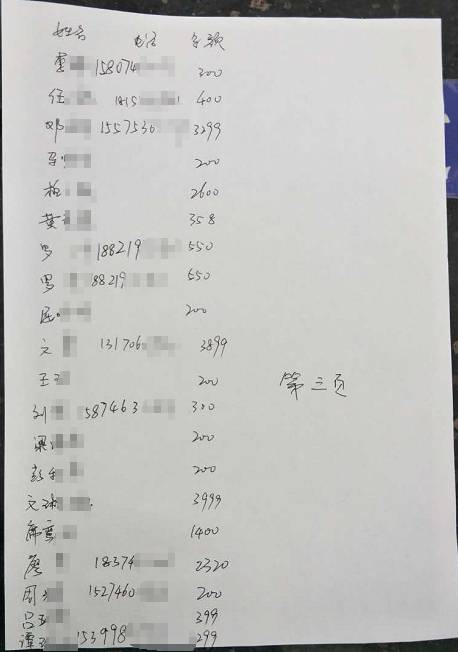 姓名 电话 金额
李 158074 300
任 1815 400
邓 1557536 3299
200
柏 2600
黄 358
罗 188219 550
罗 88219 550
200
文 131706 3899
王 200
刘 587463 300
梁 200
彭 200
文 3999
席 1400
廖 18374 2320
周 1527460 200
吕 399
谭 153998 299
第三页